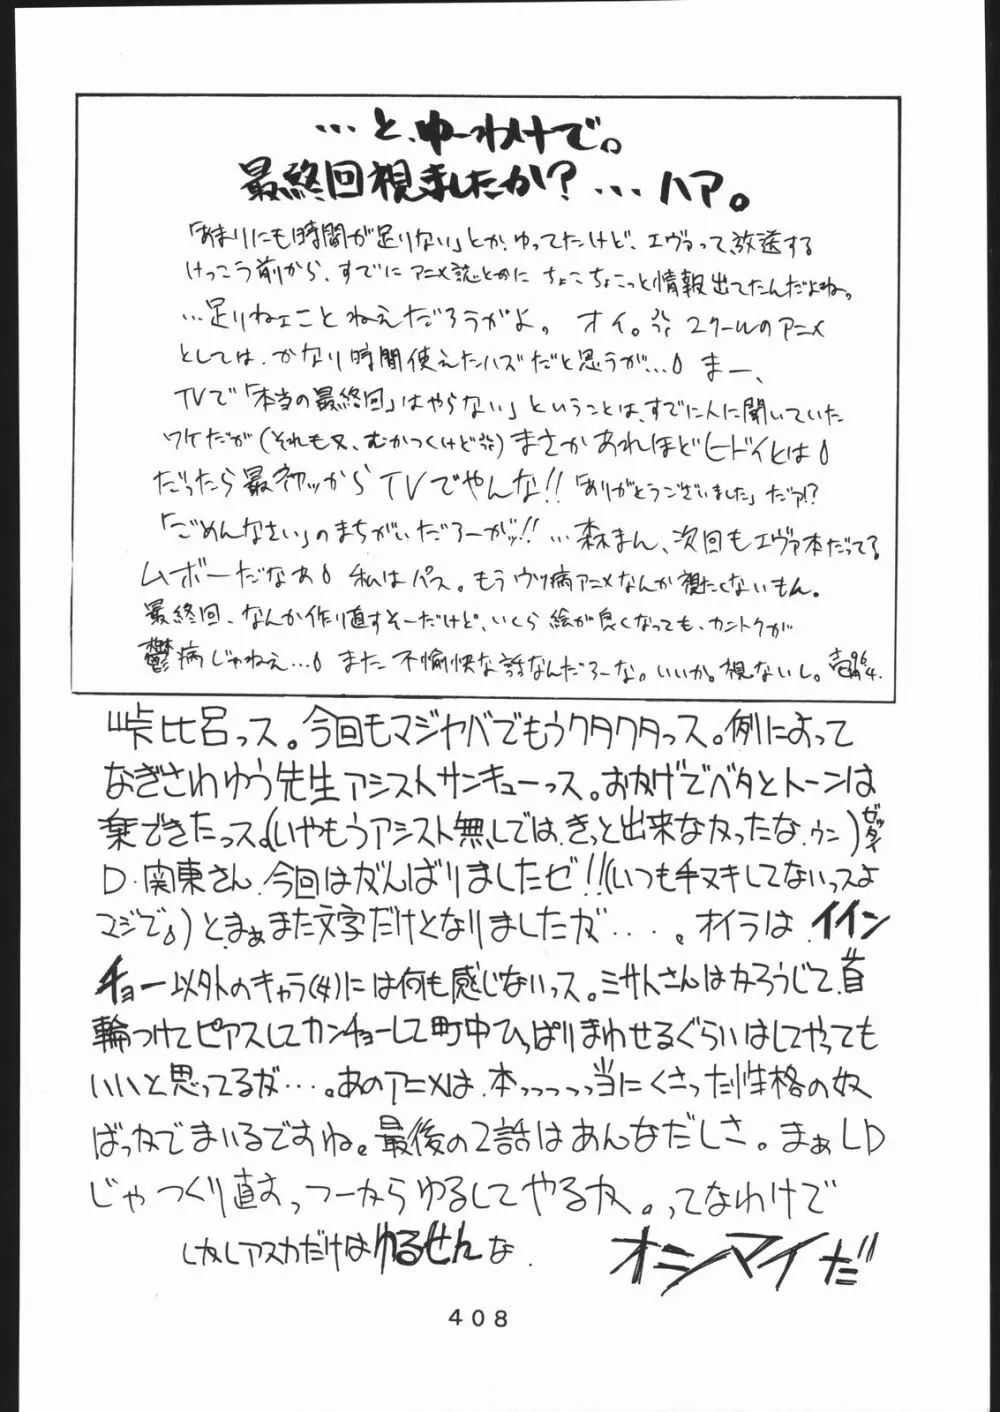 …と、ゆーわけで。
最終回視ましたか?…ハア。
「あまりにも時間が足りない」とか、ゆってたけど、エヴァって、放送する
けっこう前から、すでにアニメ誌とかに ちょこちょこっと情報出てたんだよね。
…足りねェことねえだろうがよ。オイ。2クールのアニメ
としては、かなり時間使えたハズだと思うが…。まー、
TVで「本当の最終回」はやらない」ということは、すでに人に聞いていた
ワケだが(それも又、むかつくけど)まさかあれほどヒドイとは
だったら最初ッからTVでやんな!!「ありがとうございました」だァ!?
「ごめんなさい」のまちがいだろーがッ!!…森まん、次回もエヴァ本だってる
ムボーだなぁ 私はパス。もうウツ病アニメなんか視たくないもん。
最終回、なんか作り直すそーだけど、いくら絵が良くなっても、カントクが
鬱病じゃねえ…。また不愉快な話なんだろーな。いいか。視ないし。 96.4.
峠比呂っス。今回もマジヤベでもうクタクタっス。例によって
なぎさわゆう先生アシストサンキューっス。おかげでベタとトーンは
楽できたっス。(いやもうアシスト無しでは、きっと出来なかったな、ウン)ゼッタイ
D・関東さん、今回はがんばりましたゼ!!(いつも手ヌキしてないっスよ
マジで。)と、まぁまた文字だけとなりましたが・・・・。オイラは、イイン
チョー以外のキャラ(女)には何も感じないっス。ミサトさんはかろうじて、首
輪つけてピアスしてカンチョーして町中ひっぱりまわせるぐらいはしてやっても
いいと思ってるが・・・・。あのアニメは、本っっっっ当にくさった性格の奴
ばっかでまいるですね。最後の2話はあんなだしさ。まぁLD
じゃつくり直すっつーからゆるしてやるか。ってなわけで
しかしアスカだけはゆるせんな. オシマイだ
408